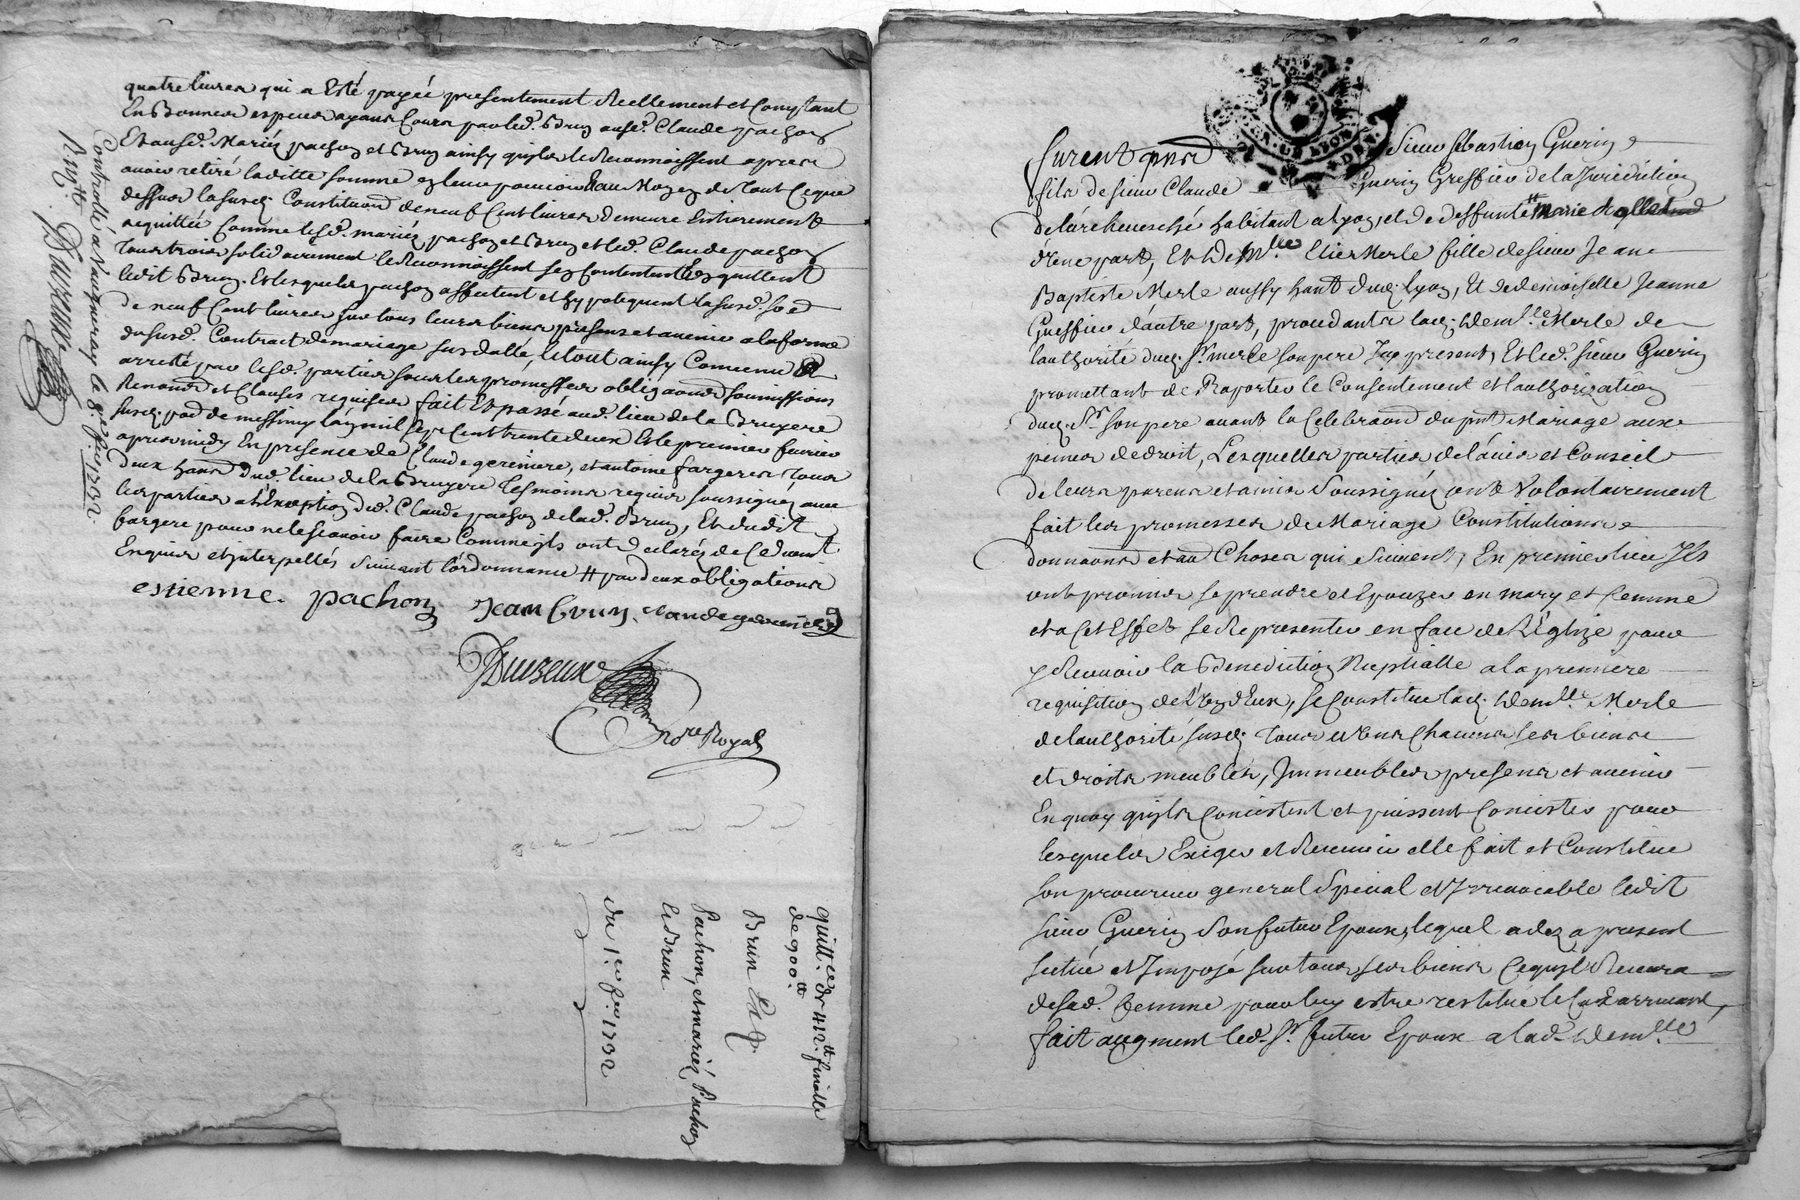 quatre livres qui a Esté payée presentement Reellement et Comptant
En Bonnes especes ayans Cours par led. Brun aud. Claude pachon
Et ausd. Mariés pachon et Brun ainsy quils le Reconnoissent apres
avoir retiré laditte somme en leur pouvoir au Moyen de tout ce que
dessus la susd. Constitution de neuf Cent livres demeure Entierement
acquittée Comme lesd. mariés pachon et Brun et led. Claude pachon
tous trois solidairement le Reconnoissent sen contentant et en quittent
ledit Brun. Et lesquels pachon affectent et hypotequent la susd. so.e
de neuf Cent livres sur tous leurs biens presens et avenir a la forme
du susd. Contract de mariage sus datté, le tout ainsy Convenu et
arresté par lesd. parties sous les promesses obligaons soumissions
Renonons et Clauses requises fait Et passé aud. lieu de la Bruyere
susd. par. de messimy lan mil sept Cent trente deux Et le premier fevrier
apres midy En presence de Claude gereniere, et antoine fargere tous
deux hans dud. lieu de la Bruyere tesmoins requis soussignés avec
les parties a l'Exception dud. Claude pachon de lad. Brun, Et dudit
fargere pour ne le scavoir faire Comme ils ont declaré de Ce duement
Enquis et interpellés Suivant l'ordonnance # par deux obligations
estienne. pachon Jean brun. claude gereniere
Duvzeux
No.re Royal
Controllé a Vaugneray le 8.e fev. 1732.
Duvzeux
quitt.ce de 412.tt finalle
de 900.tt
Brun
Pachon, et mariés Pachon
Et Brun
du 1.er fev. 1732
furent pnts Sieur sebastien Guerin
fils de sieur Claude Guerin Greffier de la Jurisdiction
de l'archevesché habitant a Lyon, et de deffunte marie
d'une part, Et de M.lle Merle fille de sieur Jean
Baptiste Merle aussy hant dud. Lyon, Et de demoiselle Jeanne
Greffier d'autre part, procedants lad. Dem.lle Merle de
l'authorité dud. S.r merle son pere Icy present, Et led. sieur Guerin
promettant de Raporter le Consentement et l'authorization
dud. S.r son pere avant la Celebraon du pnt Mariage aux
peines de droit, Lesquelles parties de l'avis et Conseil
de leurs parens et amis Soussignés ont Volontairement
fait les promesses de Mariage Constitutions
donnaons et au Choses qui suivent, En premier lieu Ils
ont promis se prendre et Epouzer en mary et femme
et a Cet Effet se Representer en face de l'Eglize pour
y Recevoir la Benediction Nuptialle a la premiere
requisition de l'un d'Eux, se Constitue lad. Dem.lle Merle
de l'authorité susd. tous et uns Chacuns ses biens
et droits meubles, Immeubles presens et avenir
En quoy quils Consistent et puissent Consister pour
lesquels Exiger et Recevoir elle fait et Constitue
son procureur general Special et Irrevocable ledit
sieur Guerin son futur Epoux, lequel a dez a present
scitué et Imposé sur tous ses biens Ce quil Recevra
de sad. femme pour luy estre restitué le Cas arrivant,
fait augment led. S.r futur Epoux a lad. Dem.lle